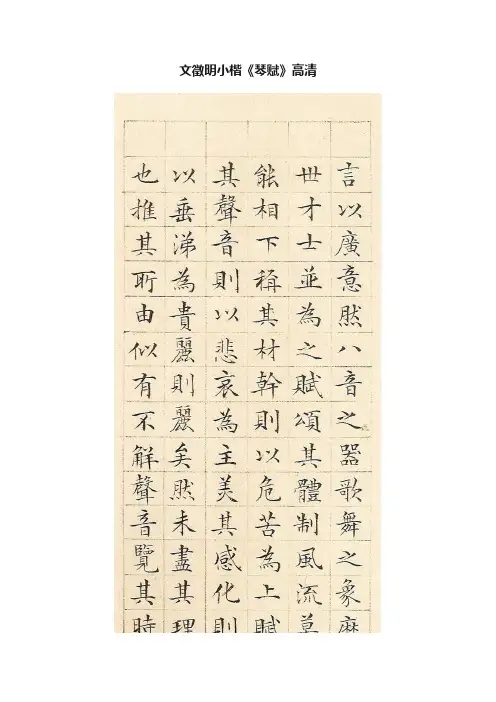 文徵明小楷《琴赋》高清
言以廣意然八音之器歌舞之象歷
世才士並為之賦頌其體制風流莫
能相下稱其材幹則以危苦為上賦
其聲音則以悲哀為主美其感化則
以垂涕為貴麗則麗矣然未盡其理
也推其所由似有不解聲音覽其時